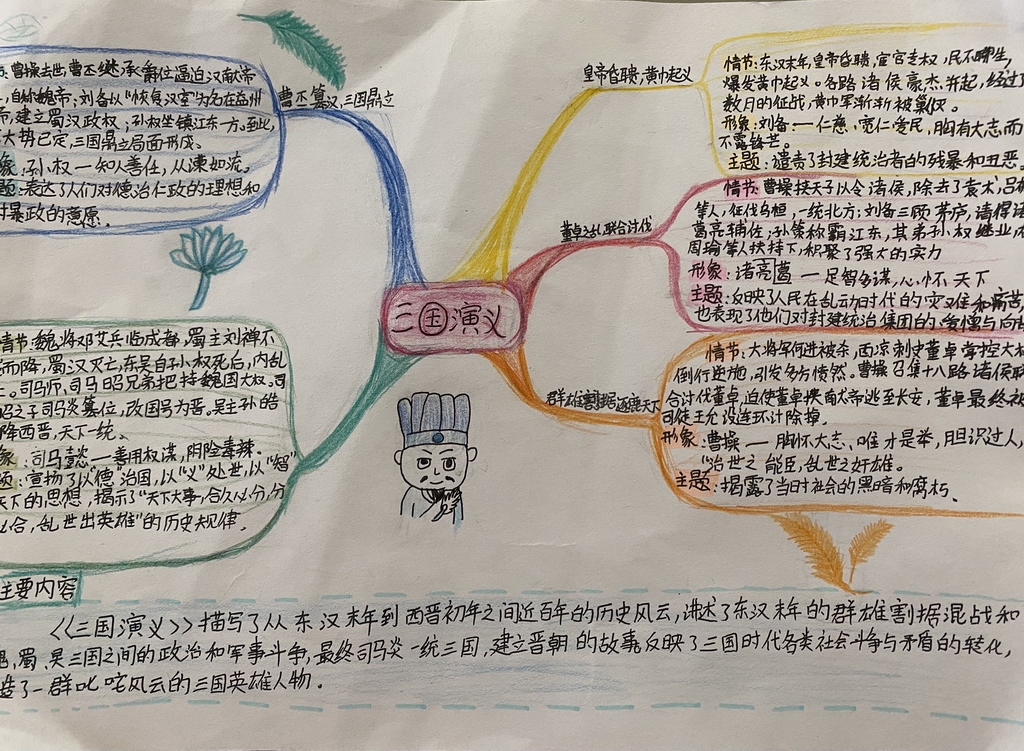 曹操去世,曹丕继承爵位逼迫汉献帝
自称魏帝;刘备以"恢复汉室"为名在益州
帝,建立蜀汉政权;孙权坐镇江东一方。至此,
大势已定,三国鼎立局面形成。
象:孙权一知人善任,从谏如流。
题:表达了人们对德治仁政的理想和
对暴政的意愿。
曹丕篡汉,三国鼎立
皇帝昏聩,黄巾起义
情节:东汉末年,皇帝昏聩,宦官专权,民不聊生,
爆发黄巾起义。各路诸侯豪杰并起,经过
数月的征战,黄巾军渐渐被剿灭。
形象:刘备:一仁慈、宽仁爱民,胸有大志而
不露锋芒。
主题:谴责了封建统治者的残暴和丑恶。
董卓之乱联合讨伐
情节:曹操挟天子以令诸侯,除去了袁术,吕布
等人,征伐乌桓,一统北方;刘备三顾茅庐,请得诸
葛亮辅佐;孙策称霸江东,其弟孙权继业,在
周瑜等人扶持下,积聚了强大的实力
形象:诸亮葛一足智多谋,心怀天下
主题:反映了人民在乱动时代的灾难和痛苦
也表现了他们对封建统治集团的
三国演义
情节:魏将邓艾兵临成都,蜀主刘禅不
而降,蜀汉灭亡,东吴自孙权死后,内乱
司马师,司马昭兄弟把持魏国大权。司
昭之子司马炎篡位,改国号为晋。吴主孙皓
降西晋,天下一统。
象:司马懿一善用权谋,阴险毒辣。
题:宣扬了以"德"治国,以"义"处世,以"智"
天下的思想,揭示了"天下大事,合久必分,分
必合,乱世出英雄"的历史规律。
群雄割据逐鹿天下
情节:大将军何进被杀,西凉刺史董卓掌控大权
倒行逆施,引发多方愤然。曹操召集十八路诸侯联
合讨伐董卓,迫使董卓挟南大帝逃至长安,董卓最终被
司徒王允设连环计除掉。
形象:曹操一胸怀大志、唯才是举,胆识过人,
"治世之能臣,乱世之奸雄。
主题:揭露了当时社会的黑暗和腐朽。
主要内容
《三国演义》描写了从东汉末年到西晋初年之间近百年的历史风云,讲述了东汉末年的群雄割据混战和
魏,蜀、吴三国之间的政治和军事斗争,最终司马炎一统三国,建立晋朝的故事反映了三国时代各类社会斗争与矛盾的转化,
造了一群叱咤风云的三国英雄人物.